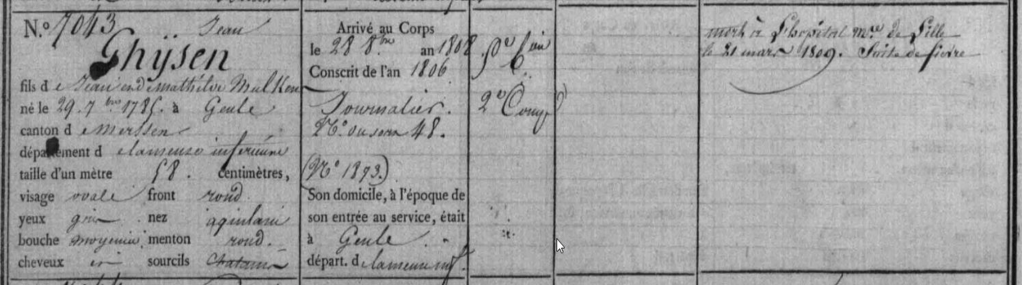 N.° 7043 Jean
Ghÿsen
fils de Jean et de Mathilde Mulken
né le 29. 7bre 1785 à Geule
canton de Merssen
département de la meuse inferieure
taille d'un mètre 58. centimètres,
visage ovale front rond
yeux gris nez aquilain
bouche moyenne menton rond.
cheveux et sourcils Chatains
Arrivé au Corps
le 28 8bre an 1808
Conscrit de l'an 1806
Journalier.
48.
(N° 1873.)
Son domicile, à l'époque de
son entrée au service, était
à Geule
départ. de la meuse inf.
5e Bon
2e Comp
mort à l'hôpital mre de Lille
le 21 mars 1809. Suite de fievre